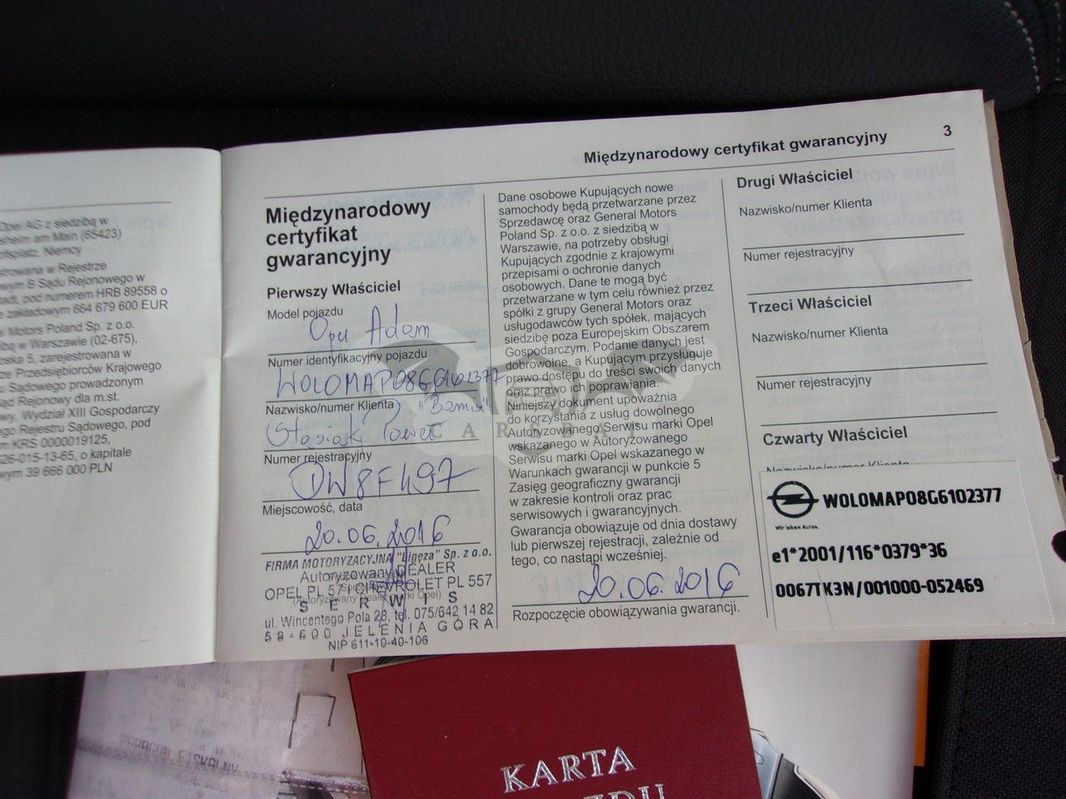 Opel AG z siedzibą w
sheim am Main (65423)
ofsplatz, Niemcy
strowana w Rejestrze
wym B Sądu Rejonowego w
tadt, pod numerem HRB 89558 o
e zakładowym 664 679 600 EUR
l Motors Poland Sp. z o.o.
dzibą w Warszawie (02-675),
oska 5, zarejestrowana w
rze Przedsiębiorców Krajowego
u Sądowego prowadzonym
ąd Rejonowy dla m.st.
wy, Wydział XIII Gospodarczy
ego Rejestru Sądowego, pod
m KRS 0000019125,
526-015-13-65, o kapitale
wym 39 666 000 PLN
Międzynarodowy certyfikat gwarancyjny 3
Międzynarodowy
certyfikat
gwarancyjny
Pierwszy Właściciel
Model pojazdu
Opel Adam
Numer identyfikacyjny pojazdu
WOLOMAP08G6102377
Nazwisko/numer Klienta
Paweł
Numer rejestracyjny
DW8F497
Miejscowość, data
20.06.2016
FIRMA MOTORYZACYJNA "Ligęza" Sp. z o.o.
Autoryzowany DEALER
OPEL PL 57 i CHEVROLET PL 557
S E R W I S
ul. Wincentego Pola 28, tel. 075/642 14 82
58-500 JELENIA GÓRA
NIP 611-10-40-106
Dane osobowe Kupujących nowe
samochody będą przetwarzane przez
Sprzedawcę oraz General Motors
Poland Sp. z o.o. z siedzibą w
Warszawie, na potrzeby obsługi
Kupujących zgodnie z krajowymi
przepisami o ochronie danych
osobowych. Dane te mogą być
przetwarzane w tym celu również przez
spółki z grupy General Motors oraz
usługodawców tych spółek, mających
siedzibę poza Europejskim Obszarem
Gospodarczym. Podanie danych jest
dobrowolne, a Kupującym przysługuje
prawo dostępu do treści swoich danych
oraz prawo ich poprawiania.
Niniejszy dokument upoważnia
do korzystania z usług dowolnego
Autoryzowanego Serwisu marki Opel
wskazanego w Autoryzowanego
Serwisu marki Opel wskazanego w
Warunkach gwarancji w punkcie 5
Zasięg geograficzny gwarancji
w zakresie kontroli oraz prac
serwisowych i gwarancyjnych.
Gwarancja obowiązuje od dnia dostawy
lub pierwszej rejestracji, zależnie od
tego, co nastąpi wcześniej.
20.06.2016
Rozpoczęcie obowiązywania gwarancji.
Drugi Właściciel
Nazwisko/numer Klienta
Numer rejestracyjny
Trzeci Właściciel
Nazwisko/numer Klienta
Numer rejestracyjny
Czwarty Właściciel
Nazwisko/numer Klienta
WOLOMAP08G6102377
Wir leben Autos.
e1*2001/116*0379*36
0067TK3N/001000-052469
PARAGON FISKALNY
KARTA